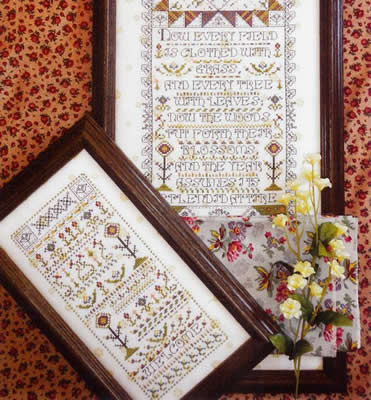 NOW EVERY FIELD
IS CLOTHED WITH
GRASS
AND EVERY TREE
WITH LEAVES:
NOW THE WOODS
PUT FORTH THEIR
BLOSSOMS
AND THE YEAR
ASSUMES ITS
SPLENDID ATTIRE